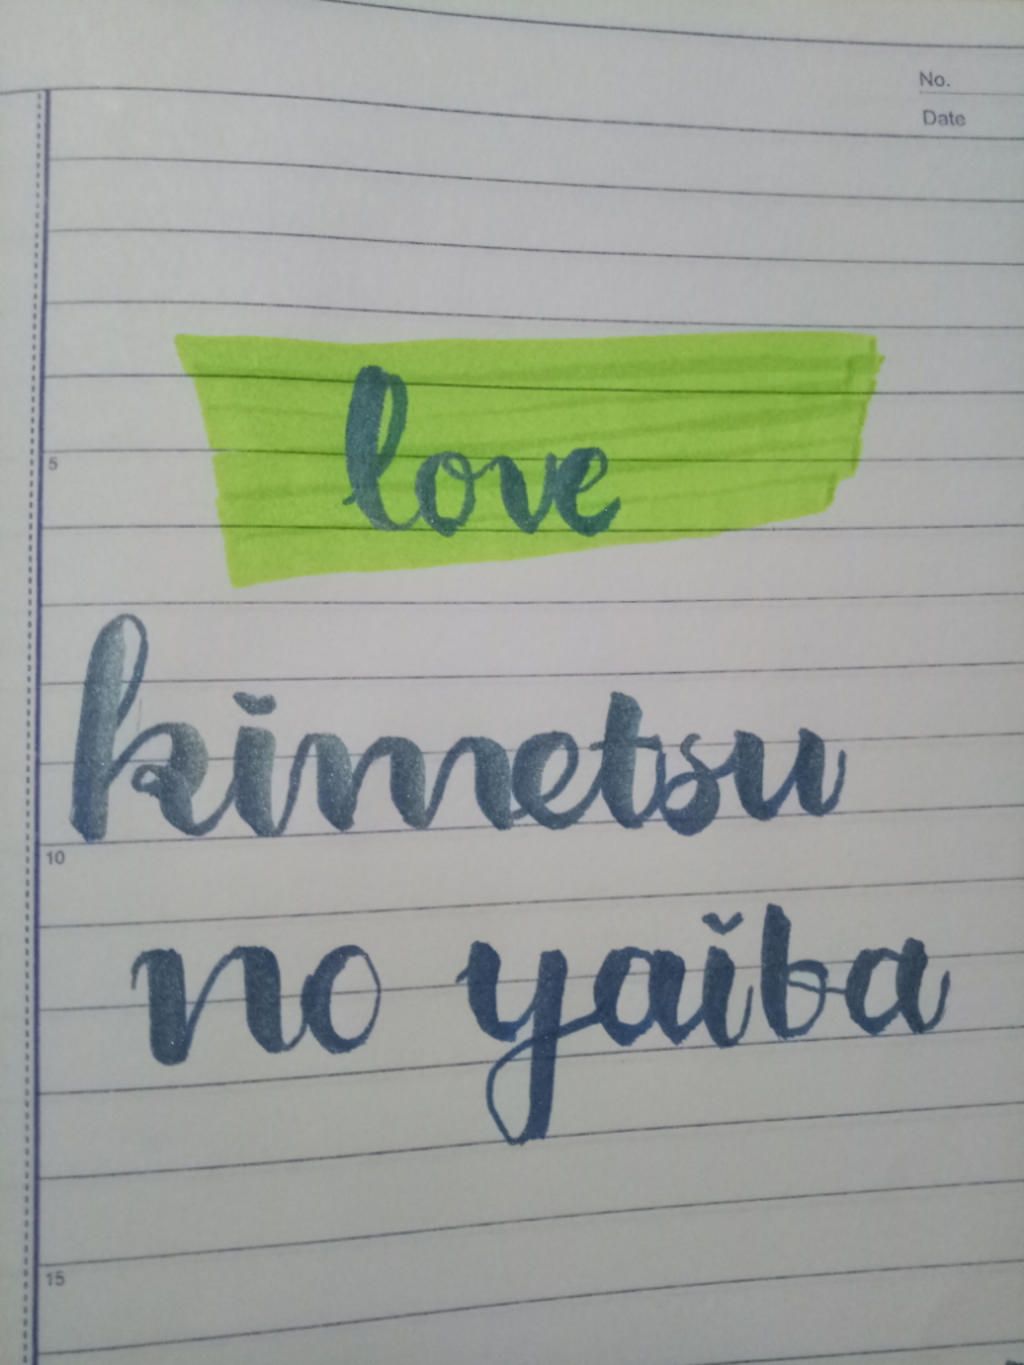 No.
Date
5
love
kimetsu
10
no yaiba
15